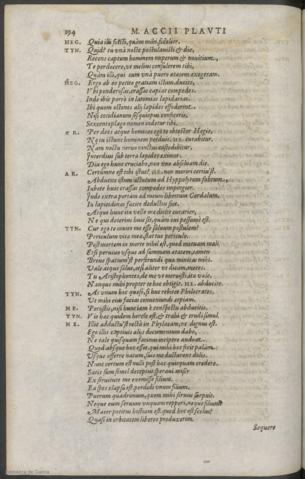 194 M. ACCII PLAVTI
HEG. Quia illi fuisti, quàm mihi fidelior.
TYN. Quid? tu vna nocte postulauisti & die,
Recens captum hominem nuperum & nouitium,
Te perdocere, vt melius consulerem tibi,
Quàm illi, qui cum vna puero aetatem exegeram.
HEG. Ergo ab eo petito gratiam istam. ducite,
Vbi ponderosas, crassas capiat compedes.
Inde ibis porrò in latomias lapidarias.
Ibi quum alij octonos lapides effodiunt,
Nisi cotidianus sesquiopus confeceris,
Sexcentoplago nomen indetur tibi.
AR. Per deos atque homines ego te obtestor Hegio,
Ne tu istunc hominem perduis. HE. curabitur.
Nam noctu neruo vinctus custodibitur,
Interdius sub terra lapides eximet.
Diu ego hunc cruciabo, non vno absoluam die.
AR. Certumne est tibi istuc? HE. non moriri certius'st.
Abducite istum actutum ad Hippolytum fabrum,
Iubete huic crassas compedes impingier.
Inde extra portam ad meum libertum Cordalum,
In lapicidinas facite deductus siet.
Atque hunc me velle dicite ita curarier,
Ne qui deterius huic sit, quàm cui pessumè est.
TYN. Cur ego te inuito me esse saluum postulem?
Periculum vitae meae, stat tuo periculo.
Post mortem in morte nihil est, quod metuam mali.
Etsi peruiuo vsque ad summam aetatem, tamen
Breue spatium'st perferundi quae minitas mihi.
Vale atque salue, etsi aliter vt dicam meres.
Tu Aristophontes, de me vt meruisti ita vale.
Nanque mihi propter te hoc obtigit. HE. abducite.
TYN. At vnum hoc quaeso, si huc rebitet Philocrates,
Vt mihi eius facias conueniundi copiam.
HE. Peristis, nisi hunc iam è conspectu abducitis.
TYN. Vis haec quidem hercle est, & trahi & trudi simul.
HE. Illic abductu'st rectà in Phylacam, vt dignus est.
Ego illis captiuis alijs documentum dabo,
Ne tale quisquam facinus incipere audeat.
Quod absque hoc esset, qui mihi hoc fecit palam,
Vsque offrenatum suis me ductarent dolis.
Nunc certum est nulli post haec quicquam credere.
Satis sum semel deceptus: speraui miser
Ex seruitute me exemisse filium.
Ea spes elapsa est, perdidi vnum filium,
Puerum quadrimum, quem mihi seruus surpuit.
Neque eum seruum vnquam repperi, neque filium:
Maior potitus hostium est. quod hoc est scelus?
Quasi in orbitatem liberos produxerim.
Sequere